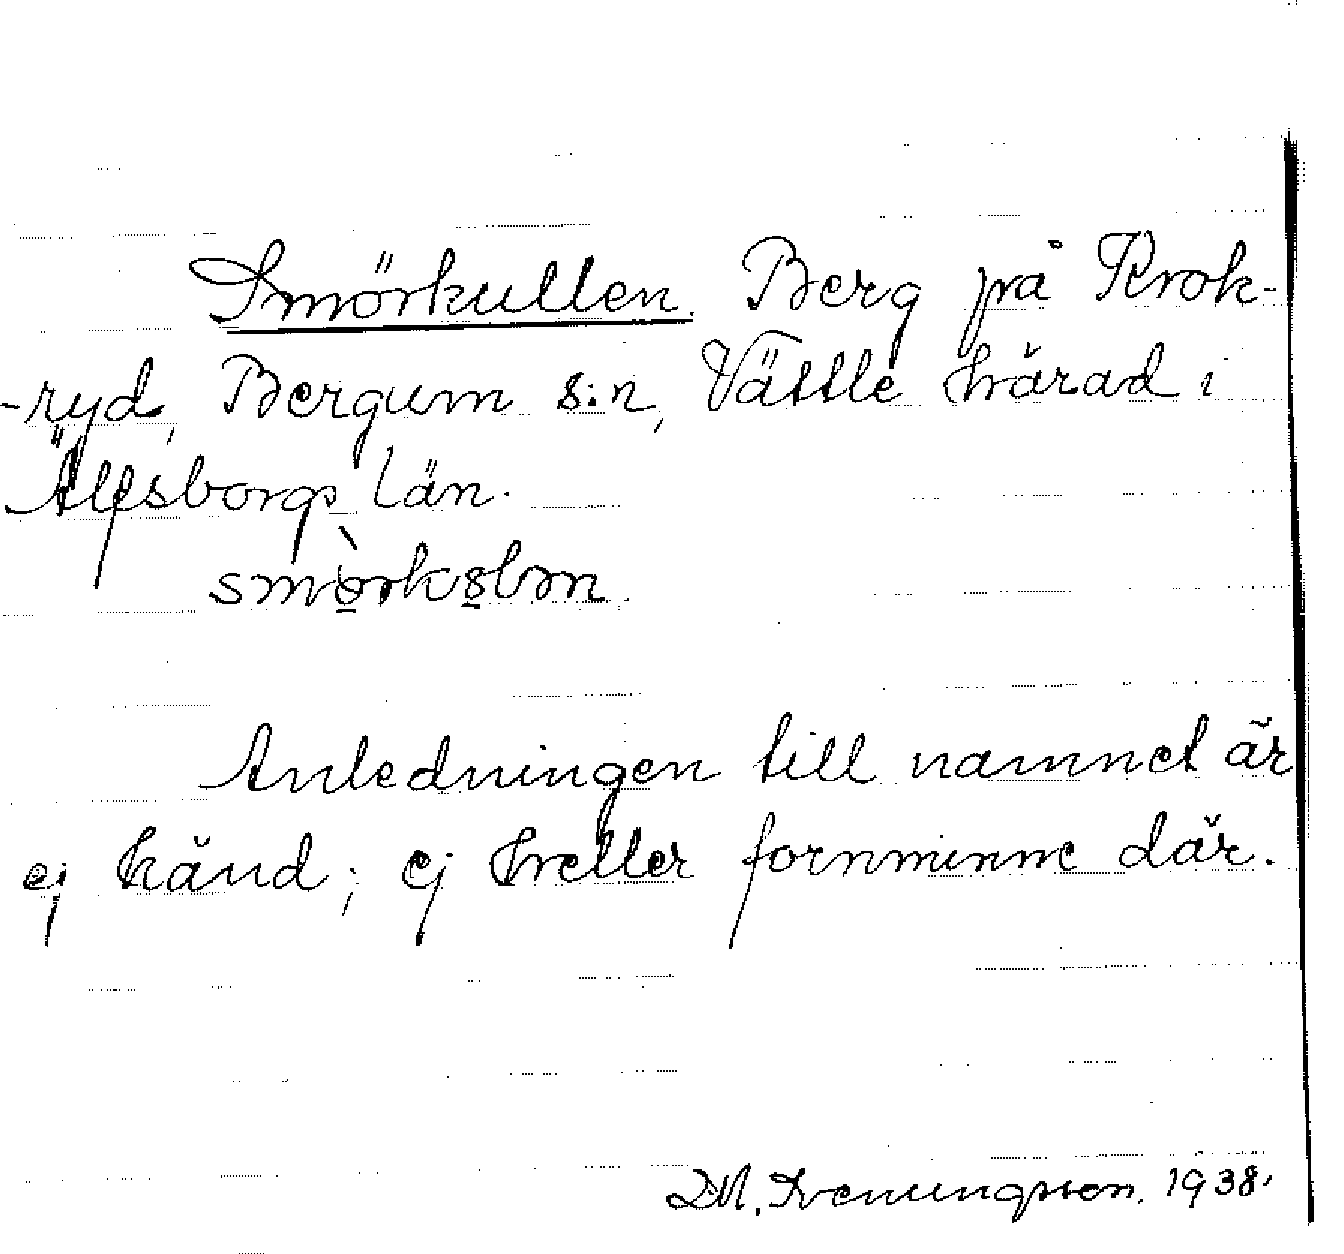 Smörkullen. Berg på Krok-
-ryd, Bergum s:n, Vättle härad i
Älfsborgs län.
Anledningen till namnet är
ej känd; ej heller fornminne där.
D.M. 1938.